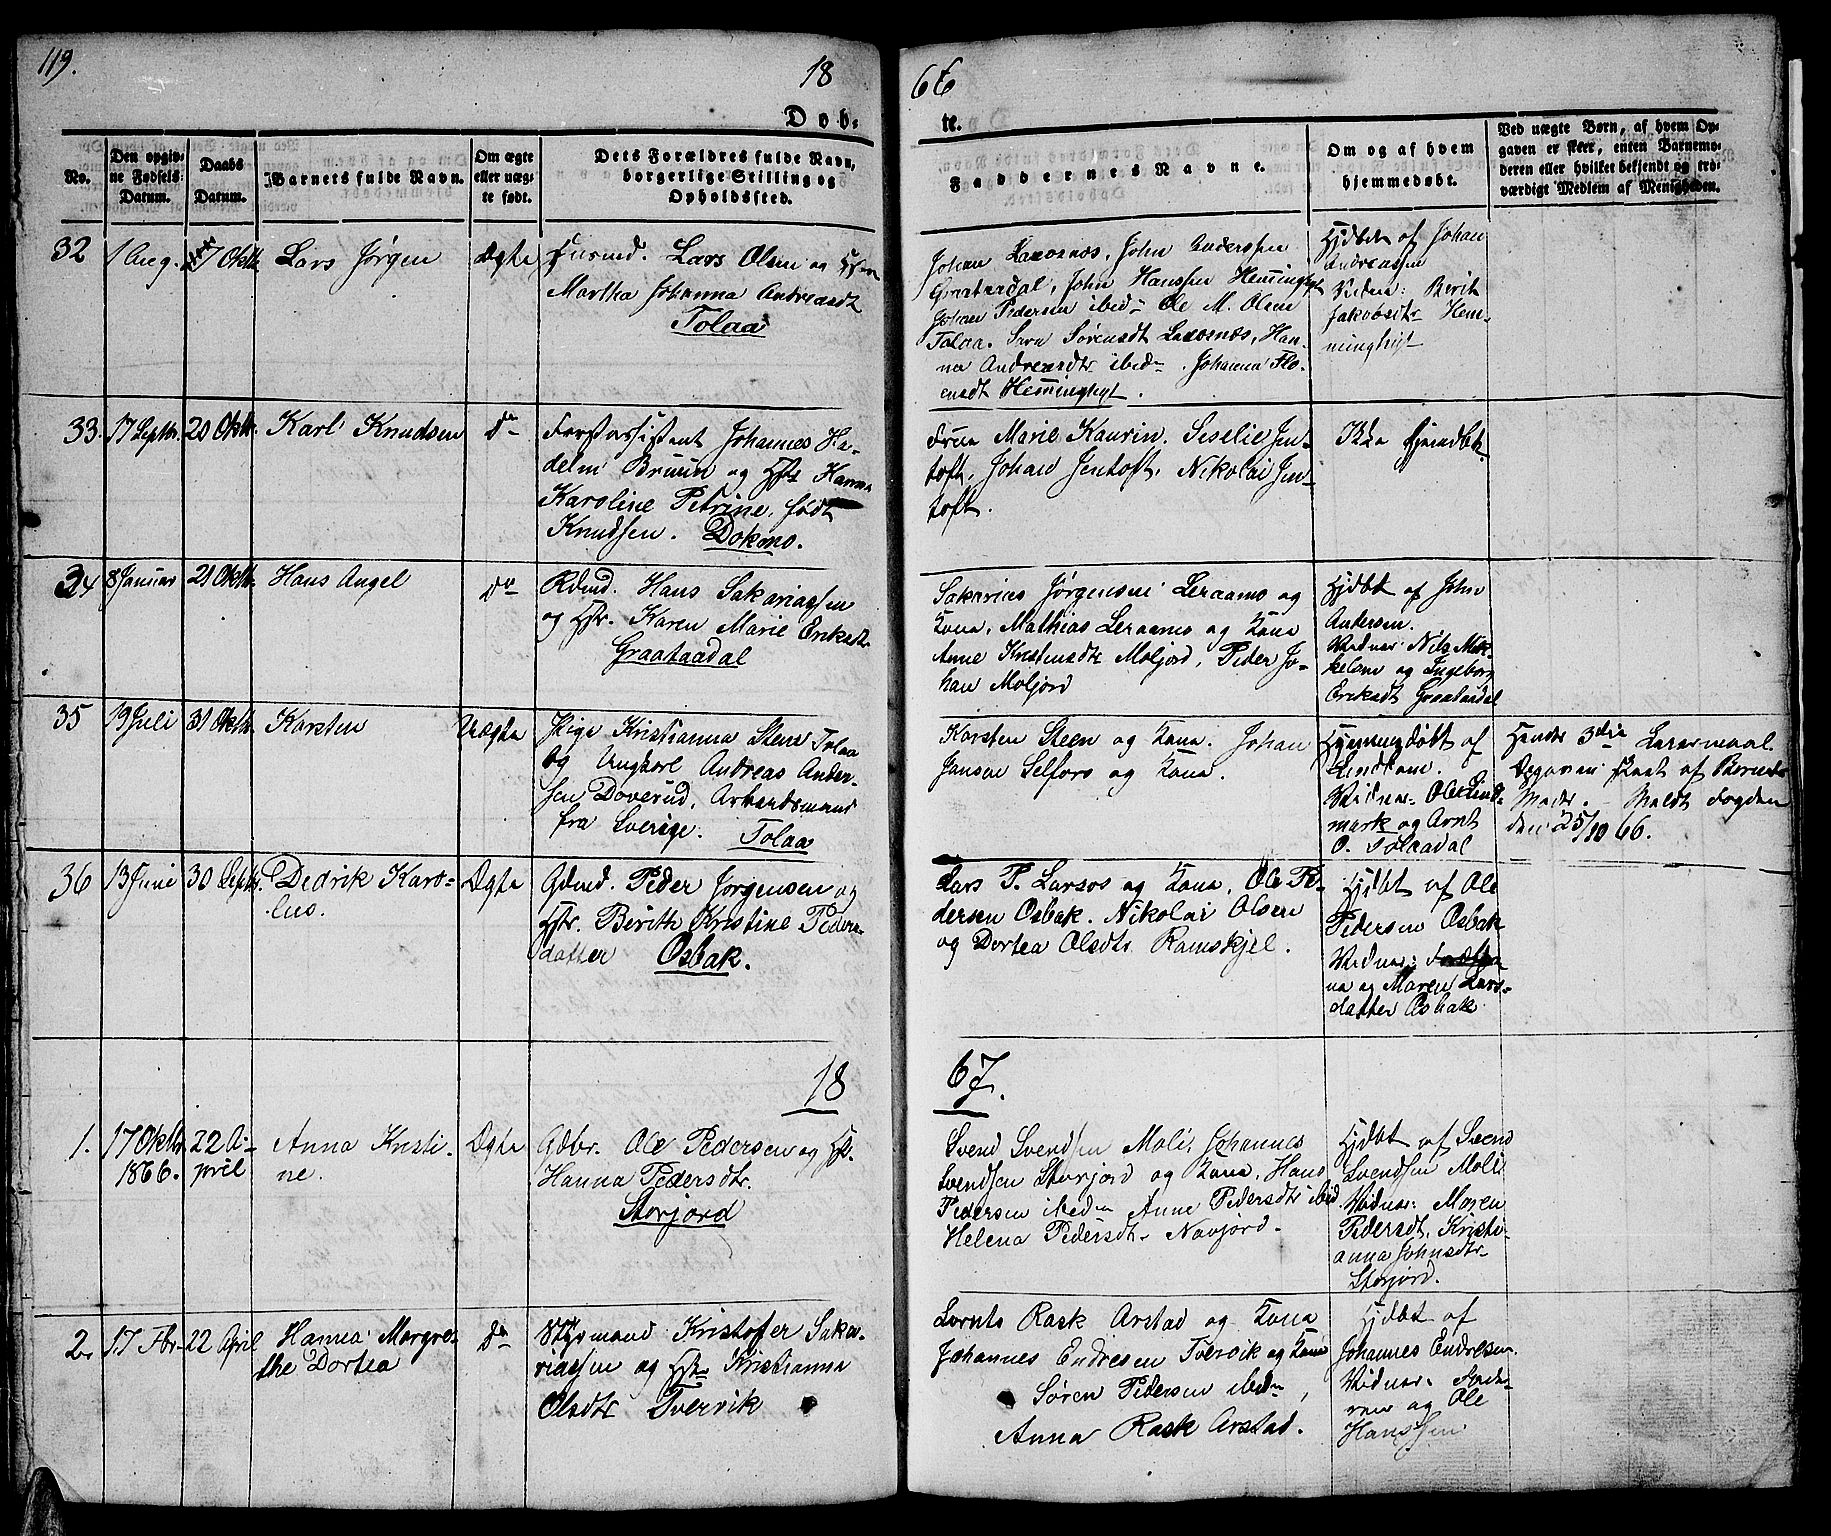 119.
18
66
Døb-
te.
No.
Den opgiv-
ne Fødsels-
Datum.
Daabs
Datum.
Barnets fulde Navn.
Om ægte
eller uæg-
te født.
Dets Forældres fulde Navn,
borgerlige Stilling og
Opholdssted.
Faddernes Navne.
Om og af hvem
hjemmedøbt.
Ved uægte Børn, af hvem Op-
gaven er skeet, enten Barnemo-
deren eller hvilket bekjendt og tro-
værdigt Medlem af Menigheden.
32
1 Aug.
7 Oktb.
Lars Jørgen
Ægte
Lars Olsen og Hstr
Martha Johanna Andreasdt
Tolaa
Johan Laxosnæs, John Anderssen
Graatardal, John Hanssen Hemminghyt
Johan Pedersen ibid- Ole M. Olsen
Tolaa. Sara Sørensdt Laxosnæs, Han-
na Andreasdtr ibid- . Johanna Flo-
ensdt Hemminghyt.
Hjdbt af Johan
Andreassen
Vidner: Berit
Jakobsdtr Hem-
minghyt
33.
17 Septb.
20 Oktb.
Karl Knudsen
do
Forstassistent Johannes Ha-
delin Bruun og Hst Hanna
Karoline Petrine, født
Knudsen. Dokmo.
Frue Marie Kaurin. Seselie Jen-
toft, Johan Jentoft, Nikolai Jen-
toft.
Ikke hjemdbt.
34
8 Januar
21 Oktb.
Hans Angel
do
Rdmd. Hans Sakariassen
og Hstr. Karen Marie Eriksdt
Graataadal
Sakarias Jørgensen Leraamo og
Kona, Mathias Leraamo og Kona
Anne Kristensdtr Moljord, Peder Jo-
han Moljord
Hjdbt af John
Andersen.
Vidner: Nils Mik-
kelsen og Ingeborg
Eriksdt Graataadal
35
19 Juli
31 Oktb.
Karsten
Uægte
Pige Kristianna Stens Tolaa
og Ungkarl Andreas Ander-
sen Doverud, Arbeidsmand
fra Sverige. Tolaa
Karsten Steen og Kona. Johan
Jansen Selfors og Kona.
Hjemmedøbt af
Lindkom.
Vidner- Ole Lind-
mark og Arnt
O. Tolaadal
Hendes 3die Leiermaal.
Opgaven skeet af Barnets
Moder. Meldt Fogden
den 25/10 66.
36
13 Juni
30 Septb.
Didrik Karo-
lius.
Ægte
Gdmd. Peder Jørgensen og
Hstr. Berith Kristine Peders-
datter Osbak.
Lars P. Larsos og Kona, Ole Pe-
dersen Osbak. Nikolai Olsen
og Dortea Olsdtr Ramskjel.
Hjdbt af Ole
Pedersen Osbak
Vidner:
og Maren Lars-
datter Osbak
18
67.
1.
17 Oktbr.
1866.
22 A-
pril
Anna Kristi-
ne.
Ægte
Gdbr. Ole Pedersen og Hst.
Hanna Pedersdtr.
Storjord
Svend Svendsen Moli, Johannes
Svendsen Storjord og Kona, Hans
Pedersen ibid- Anne Pedersdtr ibid
Helena Pedersdtr- Navjord.
Hjdbt af Svend
Svendsen Moli
Vidner: Maren
Pedersdt, Kristi-
anna Johnsdtr
Storjord.
2.
17 Fbr.
22 April
Hanna Margre-
the Dortea
do
Kristofer Saka-
riassen og Hstr Kristianna
Olsdtr Tvervik
Lornts Rask Arstad og Kona
Johannes Endresen Tvervik og Kona
Søren Pedersen ibid- ,
Anna Rask Arstad.
Hjdbt af
Johannes Endresen.
Vidner. Fade-
ren og Ole
Hanssen